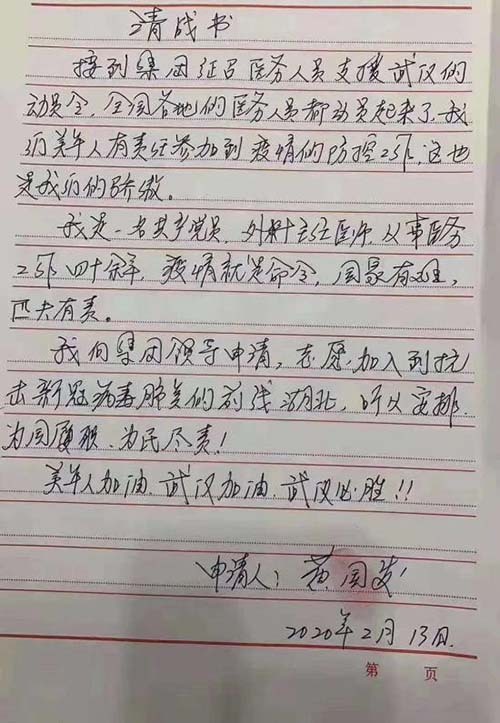 请战书
接到集团征召医务人员支援武汉的
动员令,全国各地的医务人员都动员起来了,我
们美年人有责任参加到疫情的防控工作,这也
是我们的骄傲。
我是一名共产党员,外科主任医师,从事医务
工作四十余年,疫情就是命令,国家有难,
匹夫有责。
我向集团领导申请,志愿加入到抗
击新冠病毒肺炎的前线湖北,听从安排,
为国履职、为民尽责!
美年人加油,武汉加油,武汉必胜!!
申请人:黄国发
2020年2月13日.
第 页